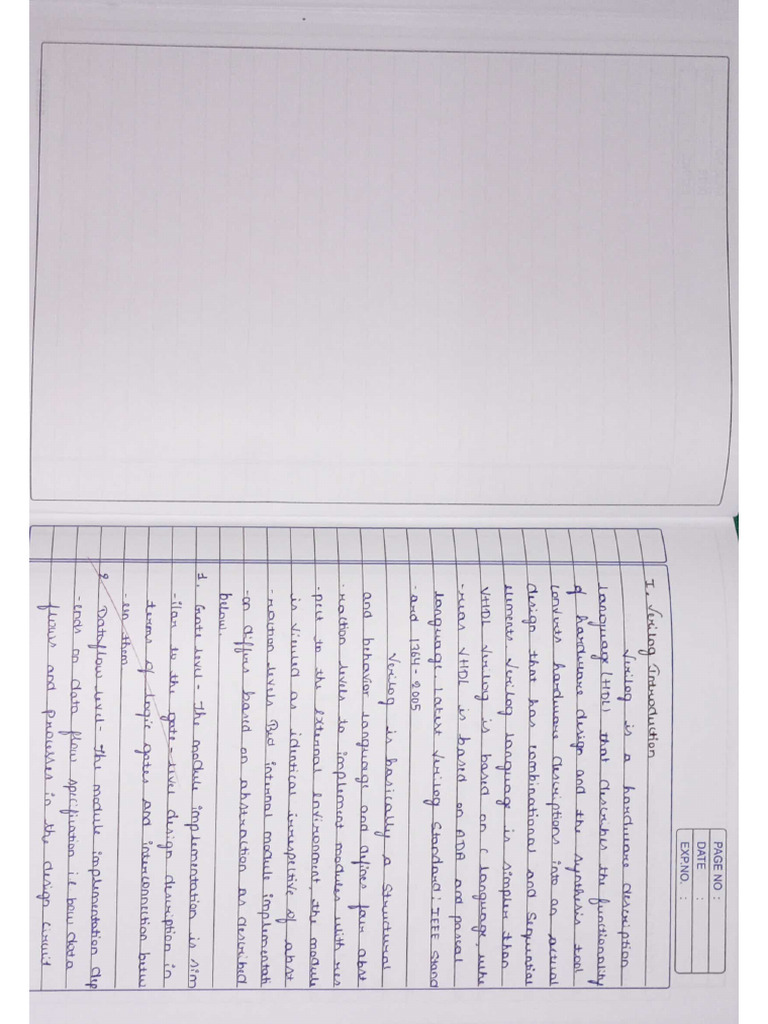 PAGE NO :
DATE :
EXP.NO. :
I. Verilog Introduction
Verilog is a hardware description
language (HDL) that describes the functionality
of hardware design and the synthesis tool
converts hardware descriptions into an actual
design that has combinational and Sequential
elements Verilog language is simpler than
VHDL Verilog is based on C language, whe
-reas VHDL is based on ADA and pascal
language. Latest Verilog Standard: IEEE Stand
-ard 1764-2005
Verilog is basically a Structural
and behavior language and defines four abst
-raction levels to implement modules with res
-pect to the external environment, the module
is viewed as identical irrespective of abst
-raction levels But internal module implementati
-on differs based on abstraction as described
below.
1. Gate level - The module implementation is sim
-ilar to the gate-level design description in
terms of logic gates and interconnection betw
-een them
2. Dataflow level - The module implementation dep
-ends on data flow specification i.e how data
flows and processes in the design circuit